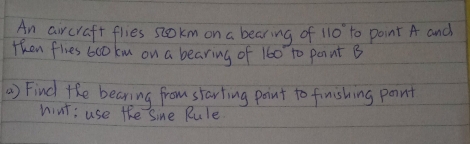 An aircraft flies 500km on a bearing of 110° to point A and
then flies 600 km on a bearing of 160° to point B
a) Find the bearing from starting point to finishing point
hint: use the Sine Rule.